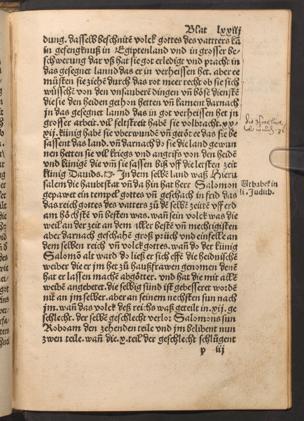 Blat lxxiij
dung. dasselb beschnitē volck gottes des vatters kā
in gefengknuß in Egiptenland vnd in grosser be-
schwerung dar vß hat sig got erledigt vnd pracht in
das gesegnet lannd das er in verheissen het. aber er
müsten sie ziehē durch das rot meer
wüssē von den vnsaubern dingen vñ bösē dienstē
die sie den heiden gethon hetten vñ kament darnach
in das gesegnet lannd das in got verheissen het in
grosser arbeit. vil felsstreit habē sie volbracht. xx
xij. künig habē sie vberwundē vñ getöt ee das sie be
sassent das land. vñ darnach do sie dis land gewun
nen hetten sie vil kriegs vnd angrifs von den heidē
vnd künige die vm sie sassen biß vff die lessten zeit
künig Dauids. In dem selbē land waß Hieru
salem die haubtstat vñ da bin hat herr Salomon
gepawet ein tempel gottes vñ geschach in frid das
das reich gottes des vatters zů dē selbē zeitē vff erd
am höchstē vñ besten was. wan sein volck was die
weil an der zeit an dem aller bestē vñ mechtigisten
aber darnach geschahē groß prüch vnd einselle an
dem selben reich vñ volck gottes. wan do der künig
Salomō alt ward do ließ er sich effē die heidnische
weiber die er jm het zů haußfrawen genomen
hat er lassen machē abgötter. vnd hat die mit allē
weibē angebetet. die selbig sünd ist gebessert wordē
nit an jm selber. aber an seinem nechsten sun nach
jm. wan das volck deß reichs waß geteilt in. xij. ge
schlecht. der selbē geschlecht verlor Salomons sun
Roboam den zehenden teile vnd jm belibent nun
zwen teile. wan die. x. teil der geschlecht schlügent
p iij
Vrhabet in
li. Judith.